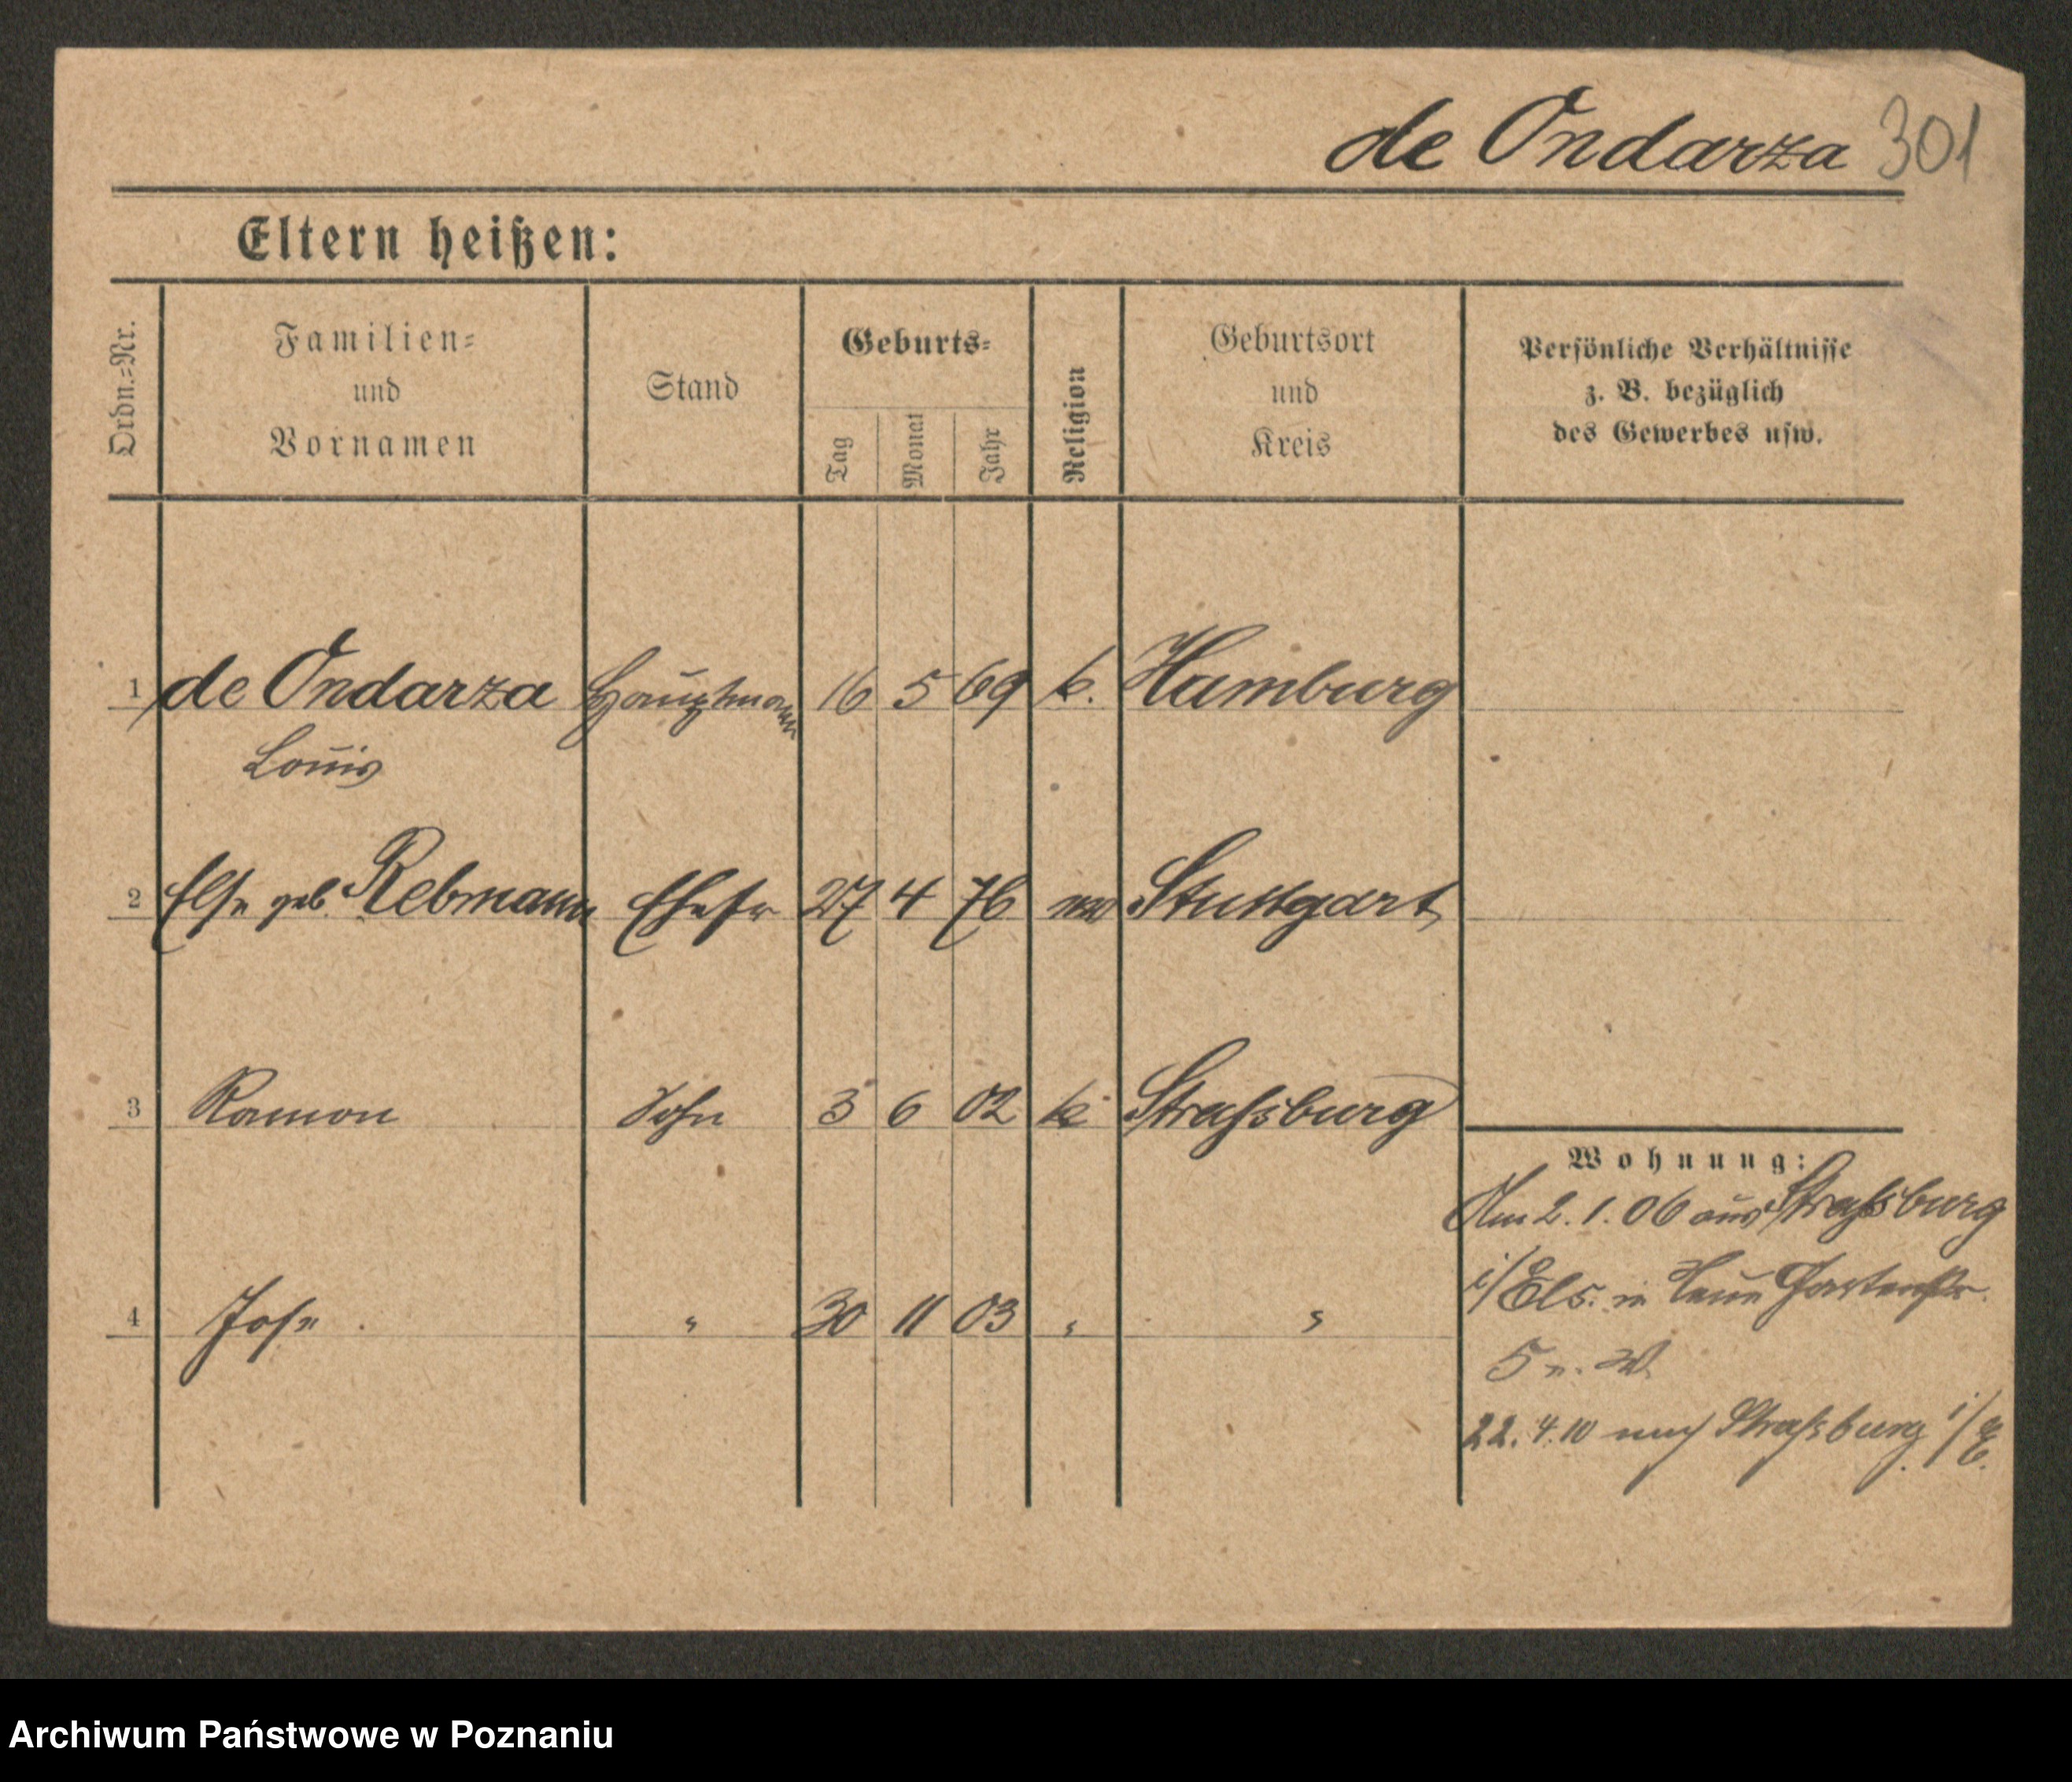 de Ondarza 301
Eltern heißen:
Ordn.=Nr.
Familien=
und
Vornamen
Stand
Geburts=
Tag
Monat
Jahr
Religion
Geburtsort
und
Kreis
Persönliche Verhältnisse
z. B. bezüglich
des Gewerbes usw.
1 de Ondarza Hauptmann 16 5 69 k. Hamburg
Louis
2 Else geb. Rebmann Ehefr 27 4 76 Stuttgart
3 Ramon Sohn 3 6 02 k Strassburg
4 Jose " 30 11 03 " "
Wohnung:
Am 2. 1. 06 aus Strassburg
i/Els. in Neue Gartenstr.
5 n. W.
22. 4. 10 nach Strassburg i/E.
Archiwum Państwowe w Poznaniu